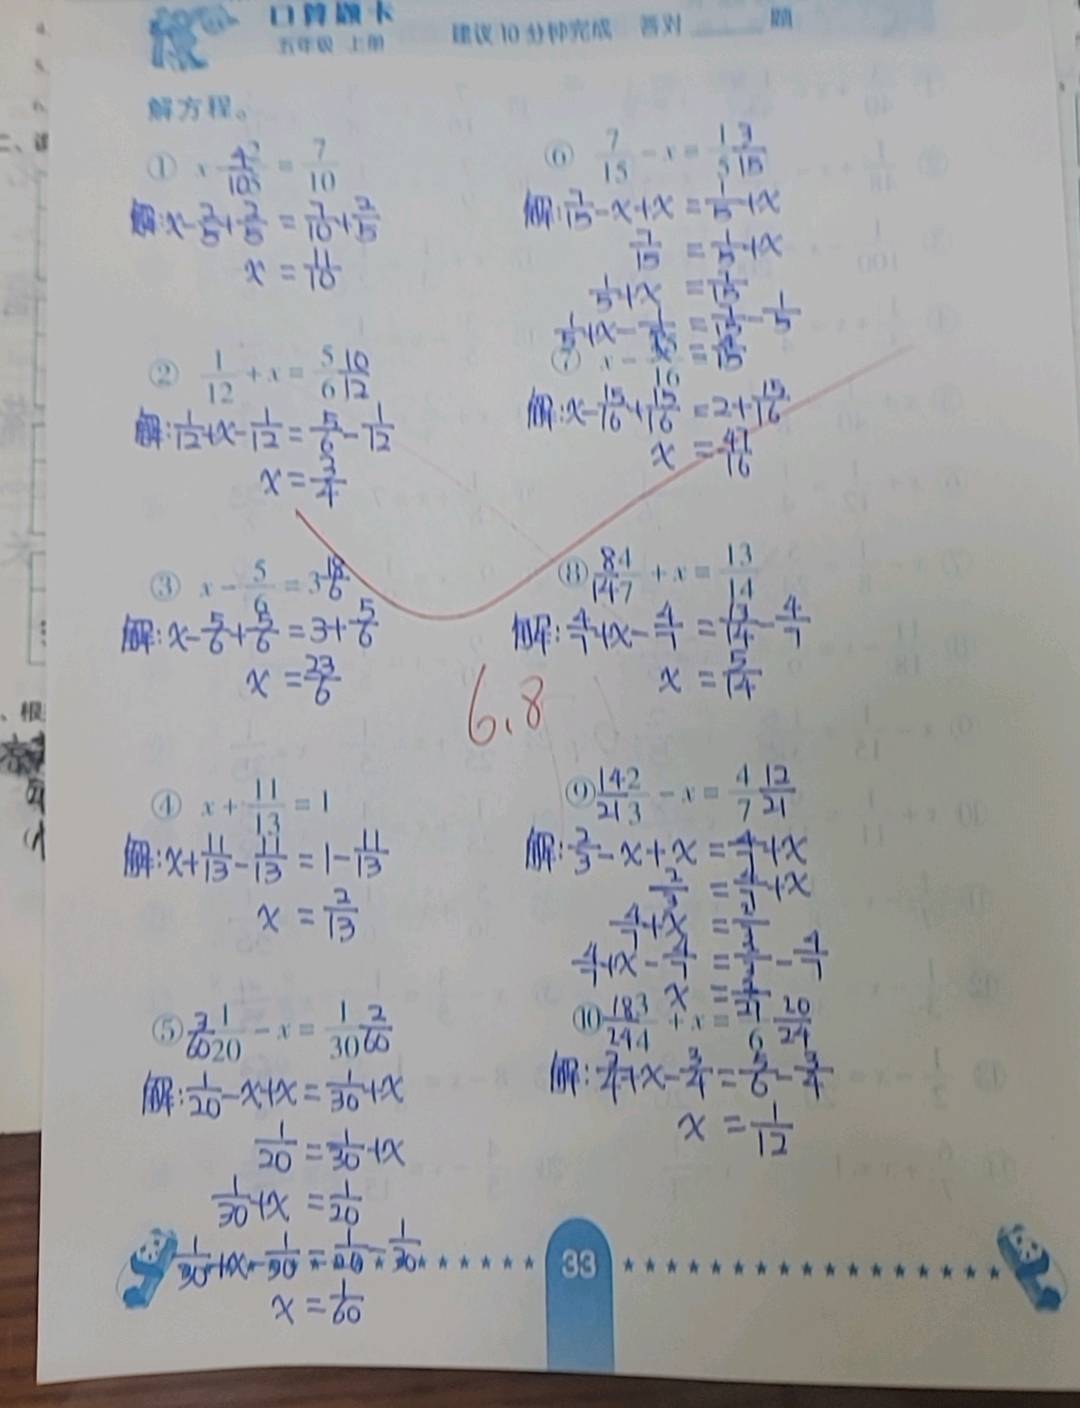 口算题卡
五年级 上册 建议10分钟完成 答对____题
解方程。
① x 4/10 2/5 = 7/10
解:x-2/5+2/5=7/10+2/5
x=11/10
② 1/12+x=5/6 10/12
解:1/12+x-1/12=5/6-1/12
x=3/4
③ x-5/6=3 18/6
解:x-5/6+5/6=3+5/6
x=23/6
④ x+11/13=1
解:x+11/13-11/13=1-11/13
x=2/13
⑤ 3/60 1/20-x=1/30 2/60
解:1/20-x+x=1/30+x
1/20=1/30+x
1/30+x=1/20
1/30+x-1/30=1/20-1/30
x=1/60
⑥ 7/15-x=1/5 3/15
解:7/15-x+x=1/5+x
7/15=1/5+x
1/5+x=7/15
1/5+x-1/5=7/15-1/5
=4/15
⑦ x-15/16
解:x-15/16+15/16=2+15/16
x=47/16
⑧ 8/14 4/7+x=13/14
解:4/7+x-4/7=13/14-4/7
x=5/14
6.8
⑨ 14/21 2/3-x=4/7 12/21
解:2/3-x+x=4/7+x
2/3=4/7+x
4/7+x=2/3
4/7+x-4/7=2/3-4/7
x=2/21
⑩ 18/24 3/4+x=5/6 20/24
解:3/4+x-3/4=5/6-3/4
x=1/12
33